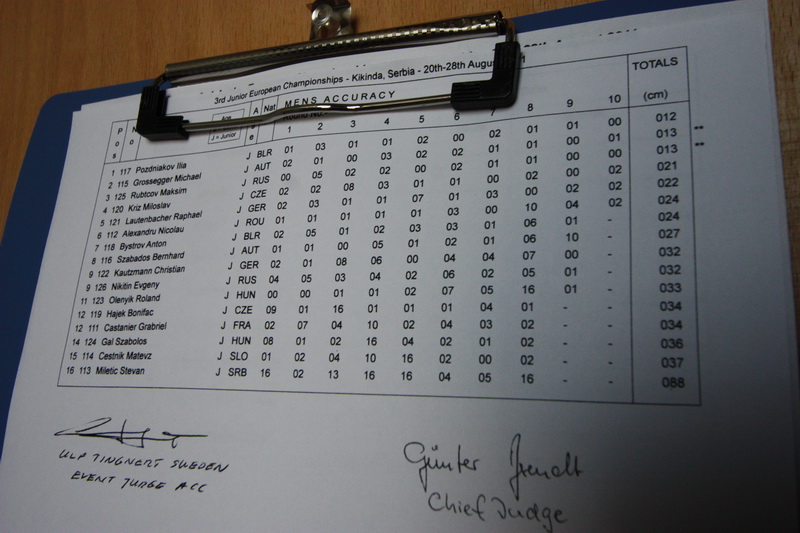 3rd Junior European Championships - Kikinda, Serbia - 20th-28th August
Pos No Age J = Junior Nat MENS ACCURACY TOTALS
1 2 3 4 5 6 7 8 9 10 (cm)
1 117 Pozdniakov Ilia J BLR 01 03 01 01 02 00 02 01 01 00 012
2 115 Grossegger Michael J AUT 02 01 00 03 02 02 01 01 00 01 013 **
3 125 Rubtcov Maksim J RUS 00 05 02 02 00 02 01 01 00 00 013 **
4 120 Kriz Miloslav J CZE 02 02 08 03 01 01 00 00 02 02 021
5 121 Lautenbacher Raphael J GER 02 03 01 01 07 01 03 00 02 02 022
6 112 Alexandru Nicolau J ROU 01 01 01 01 01 03 00 10 04 02 024
7 118 Bystrov Anton J BLR 02 05 01 02 03 03 01 06 01 - 024
8 116 Szabados Bernhard J AUT 01 01 00 05 01 02 01 06 10 - 027
9 122 Kautzmann Christian J GER 02 01 08 06 00 04 04 07 00 - 032
9 126 Nikitin Evgeny J RUS 04 05 03 04 02 06 02 05 01 - 032
11 123 Olenyik Roland J HUN 00 00 01 01 02 07 05 16 01 - 033
12 119 Hajek Bonifac J CZE 09 01 16 01 01 01 04 01 - - 034
12 111 Castanier Grabriel J FRA 02 07 04 10 02 04 03 02 - - 034
14 124 Gal Szabolos J HUN 08 01 02 16 04 02 01 02 - - 036
15 114 Cestnik Matevz J SLO 01 02 04 10 16 02 00 02 - - 037
16 113 Miletic Stevan J SRB 16 02 13 16 16 04 05 16 - - 088
ULF TINGNERT SWEDEN
EVENT JUDGE ACC
Günter
Chief Judge